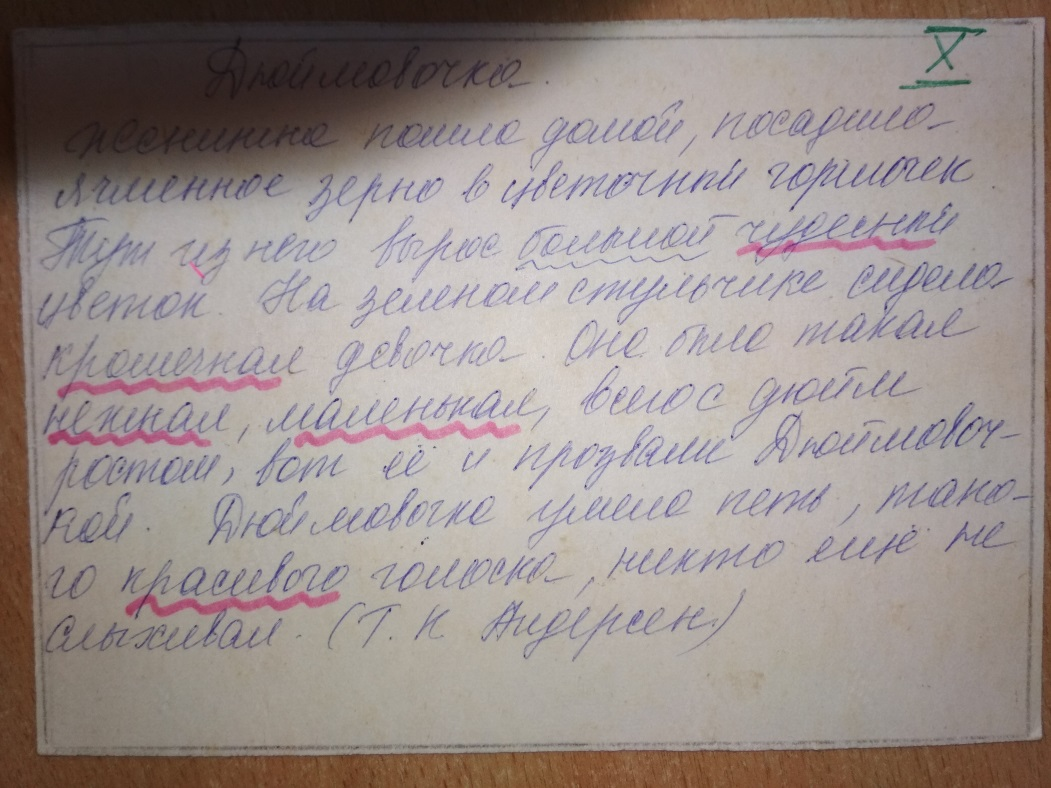 X
Дюймовочка.
женщина пошла домой, посадила
ячменное зерно в цветочный горшочек
Тут из него вырос большой чудесный
цветок. На зеленом стульчике сидела
крошечная девочка. Она была такая
нежная, маленькая, всего с дюйм
ростом, вот её и прозвали Дюймовоч-
кой. Дюймовочка умела петь, тако-
го красивого голоска, никто ещё не
слыхивал. (Г. К Андерсен.)